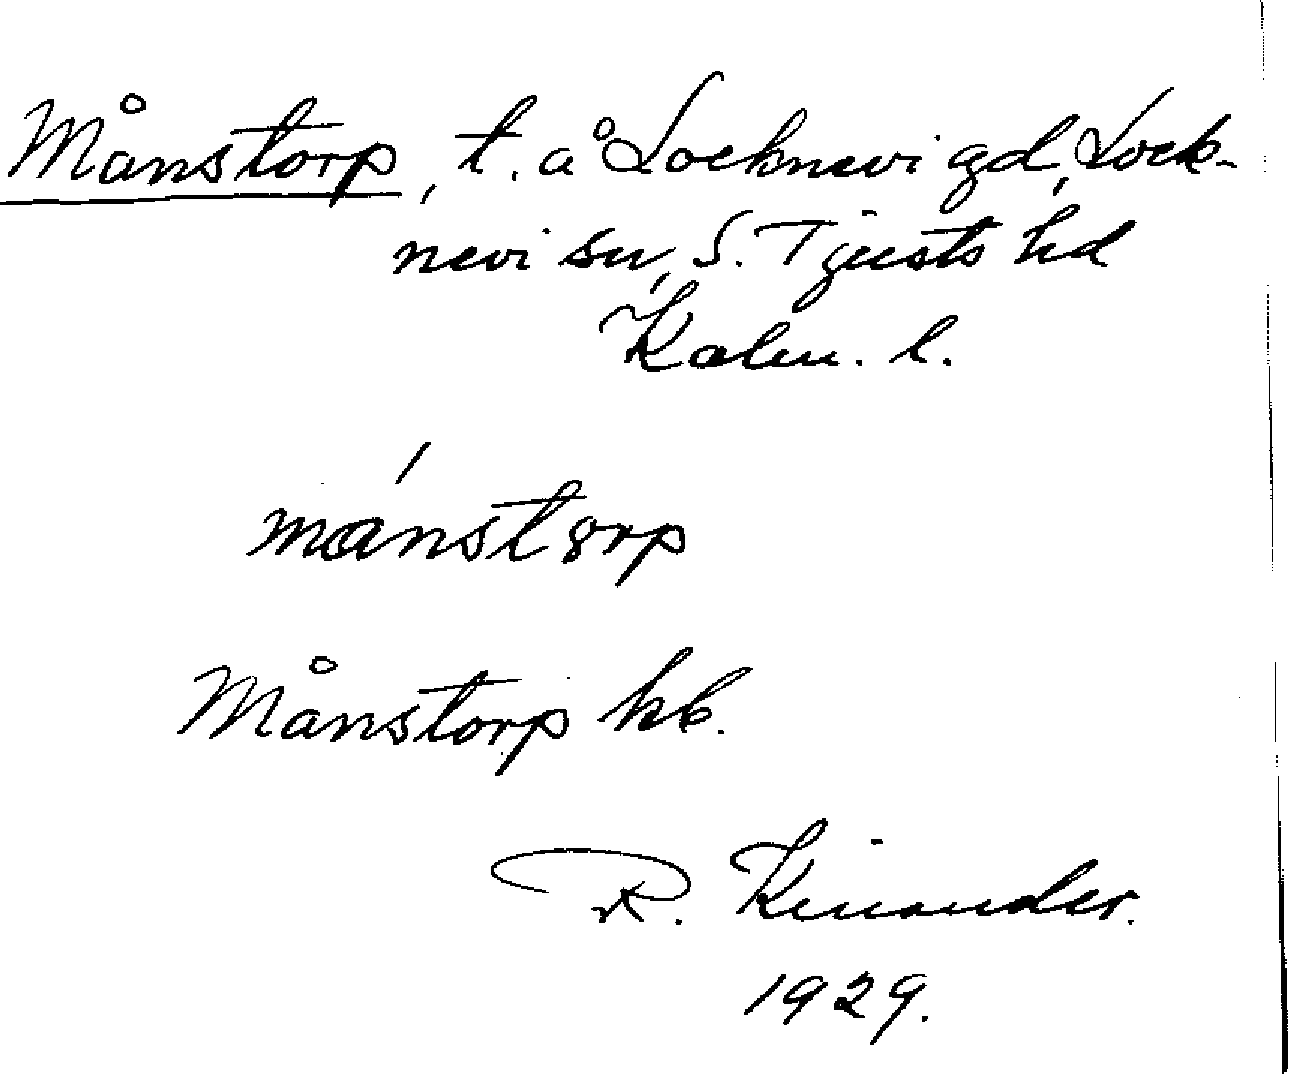 Månstorp, t. å Locknevi gd, Lock-
nevi sn, S. Tjusts hd
Kalm. l.
mánstorp
Månstorp kb.
R. Kinander.
1929.